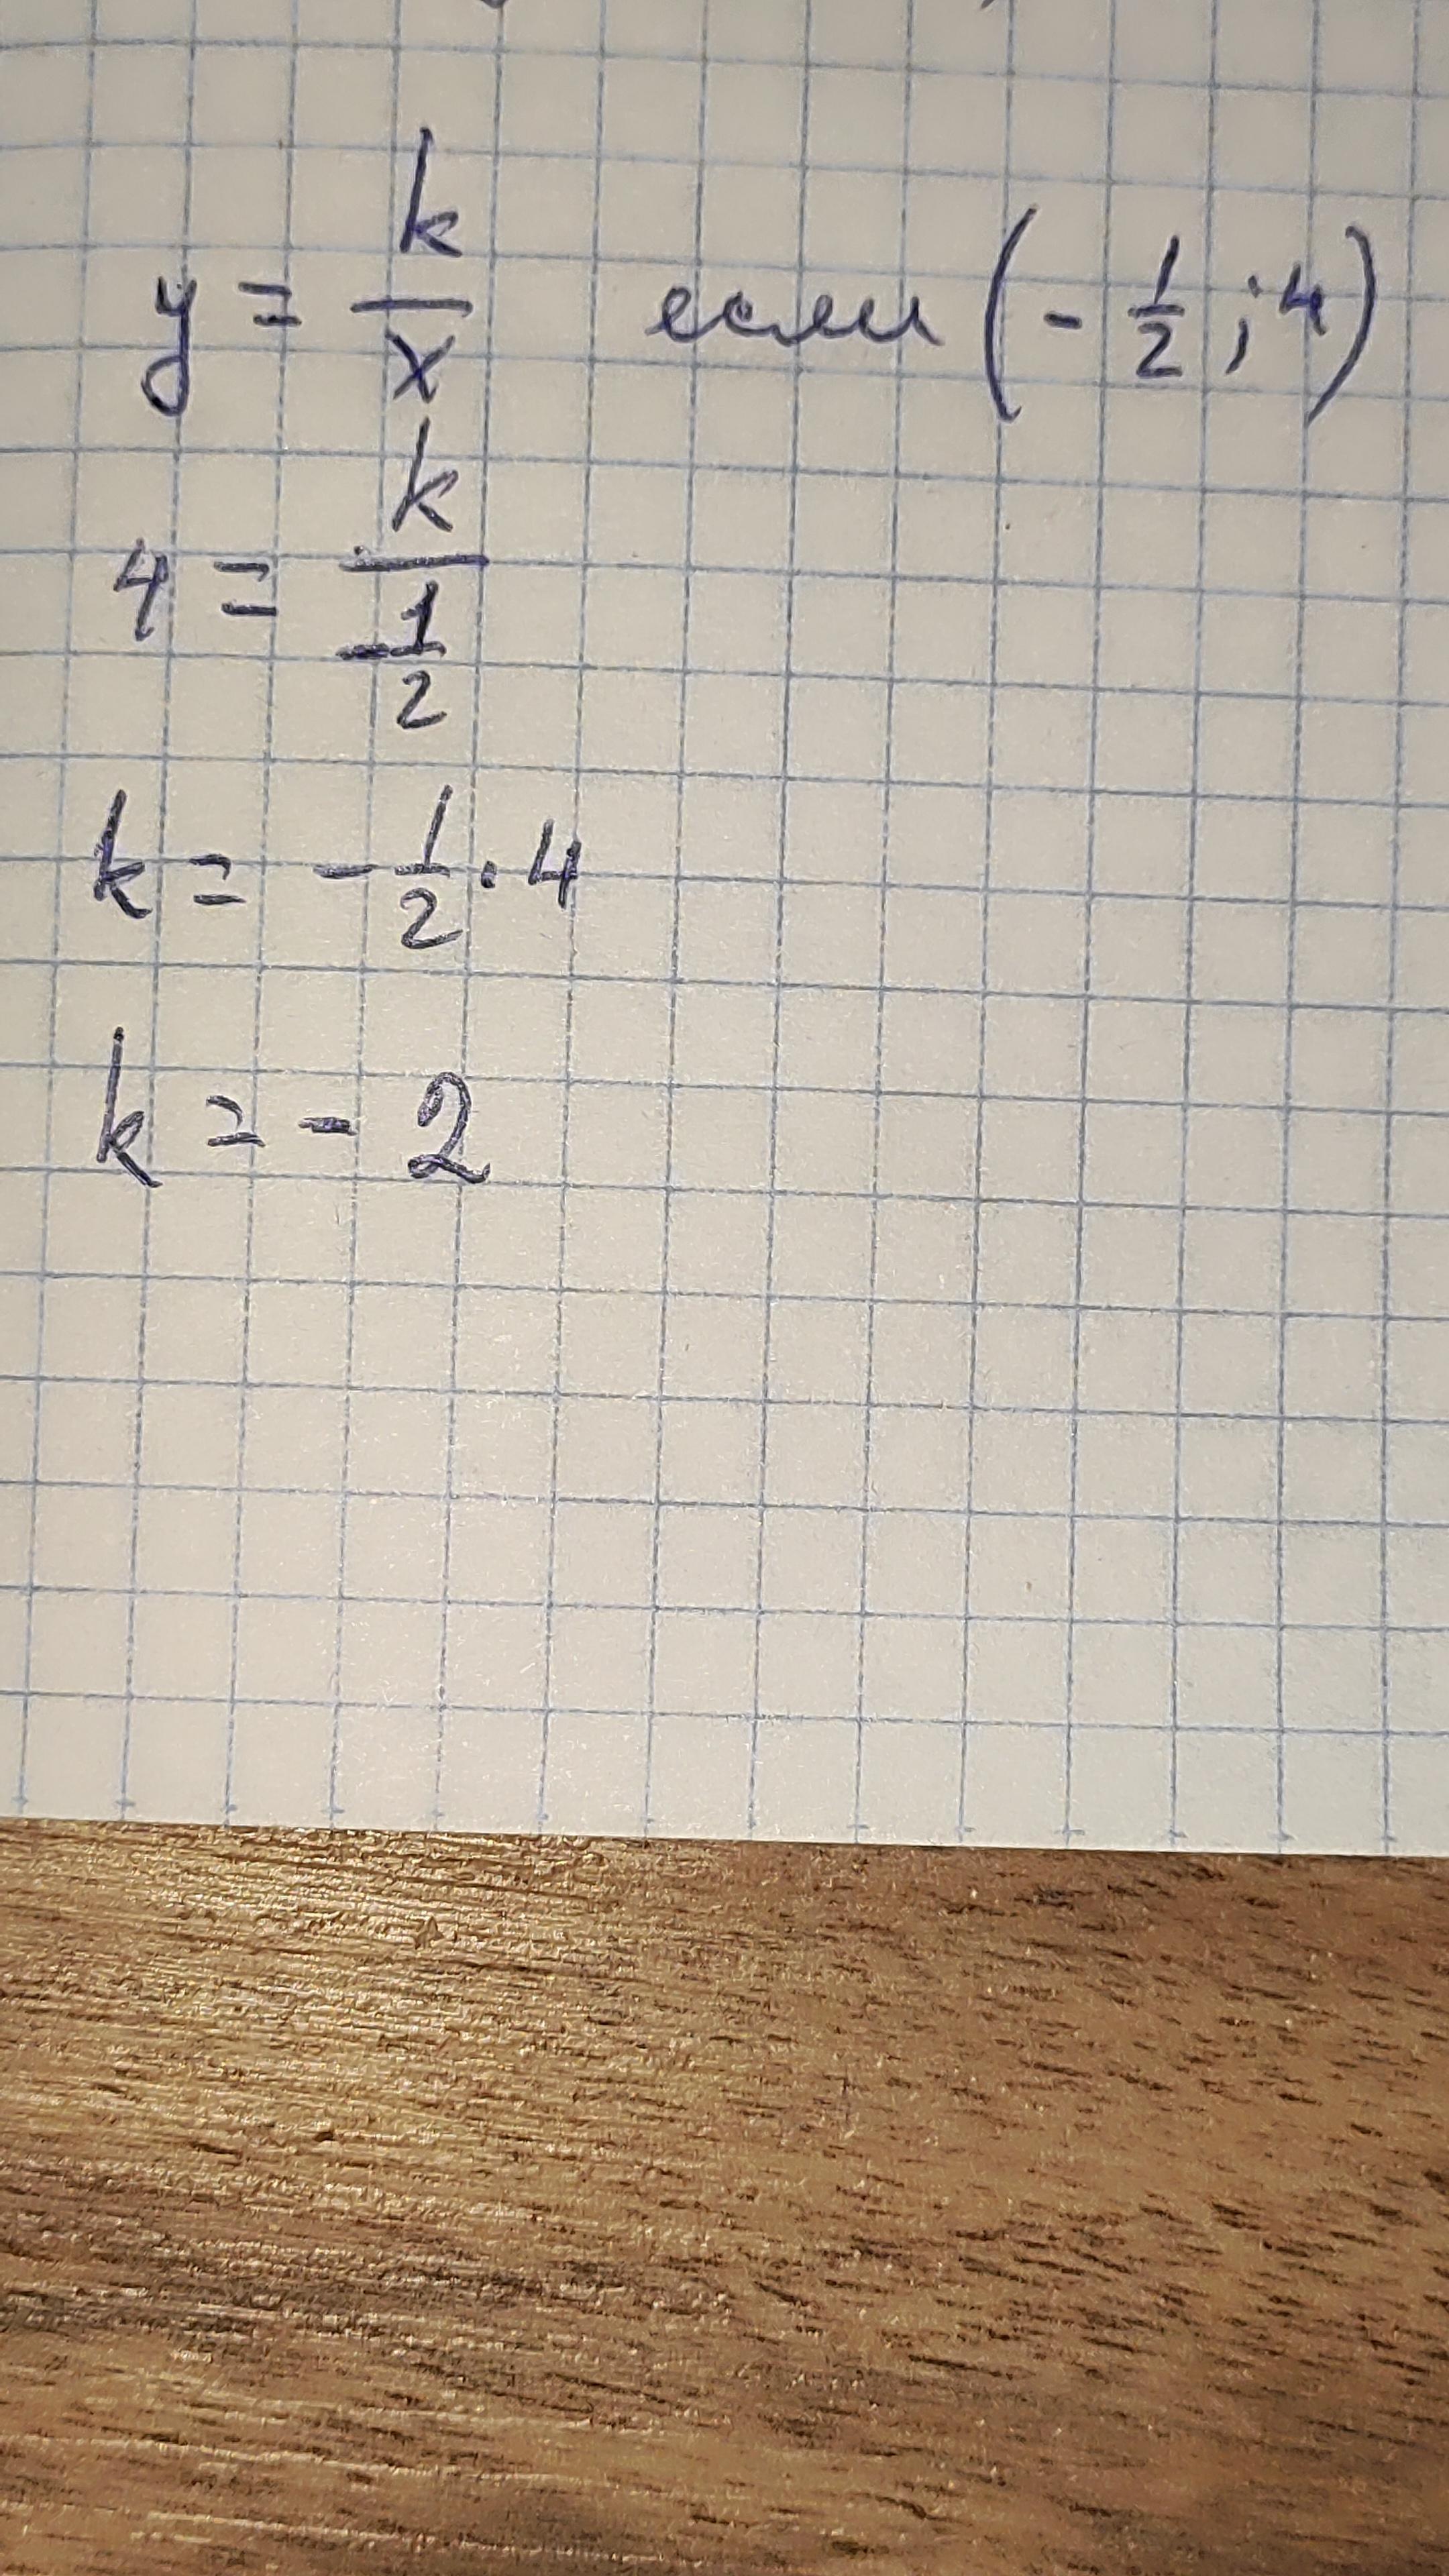 y = k/x если (-1/2 ; 4)
4 = k/-1/2
k = -1/2 · 4
k = - 2